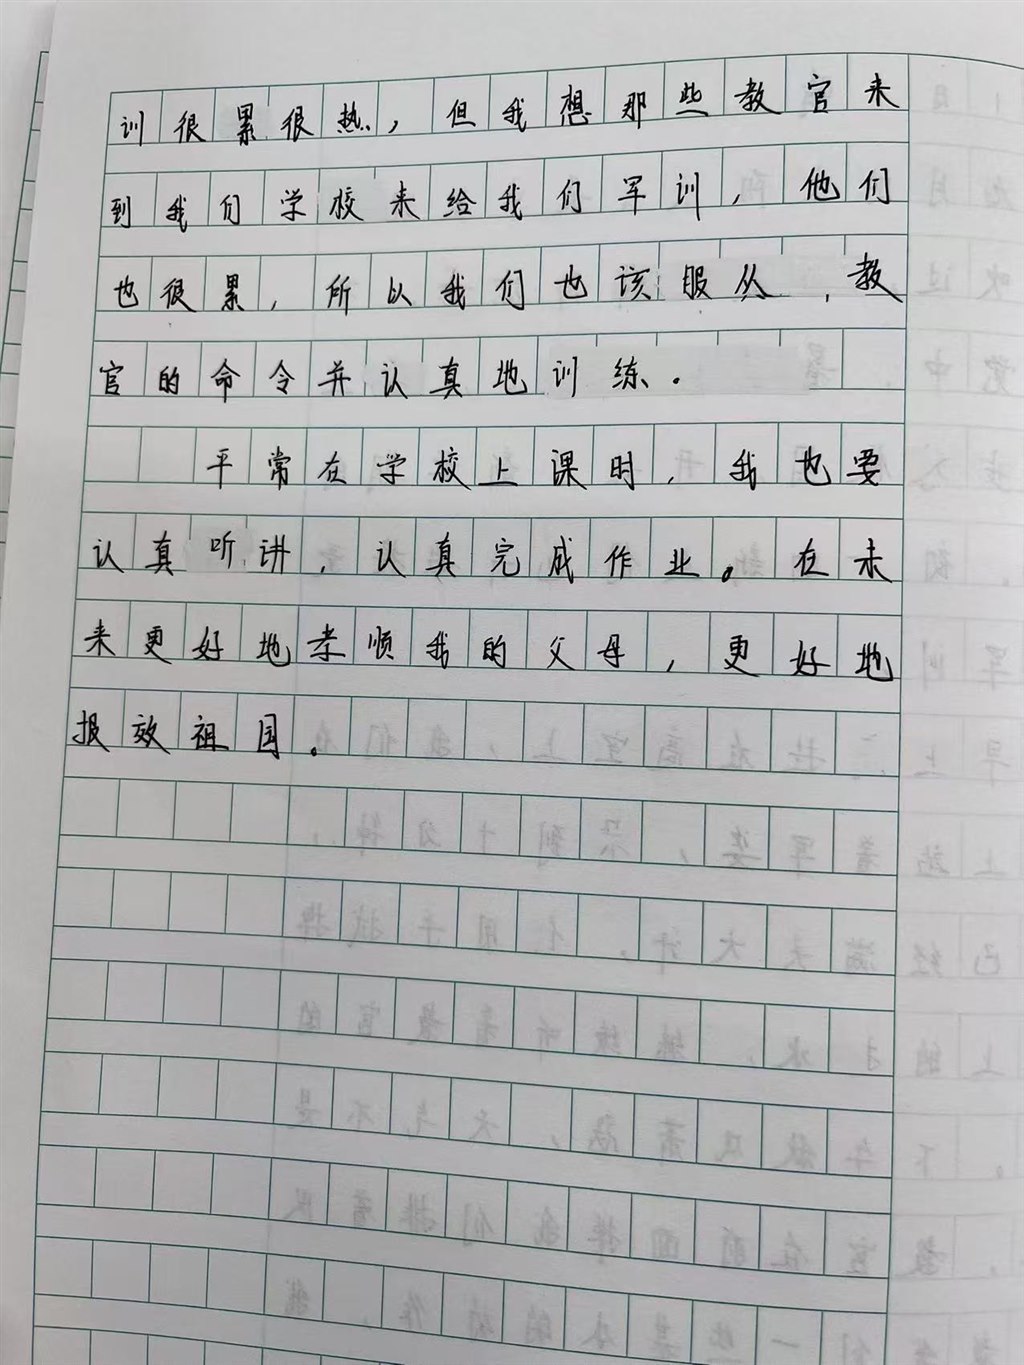 训很累很热，但我想那些教官来
到我们学校来给我们军训，他们
也很累，所以我们也该服从，教
官的命令并认真地训练．
平常在学校上课时，我也要
认真听讲，认真完成作业。在未
来更好地孝顺我的父母，更好地
报效祖国。